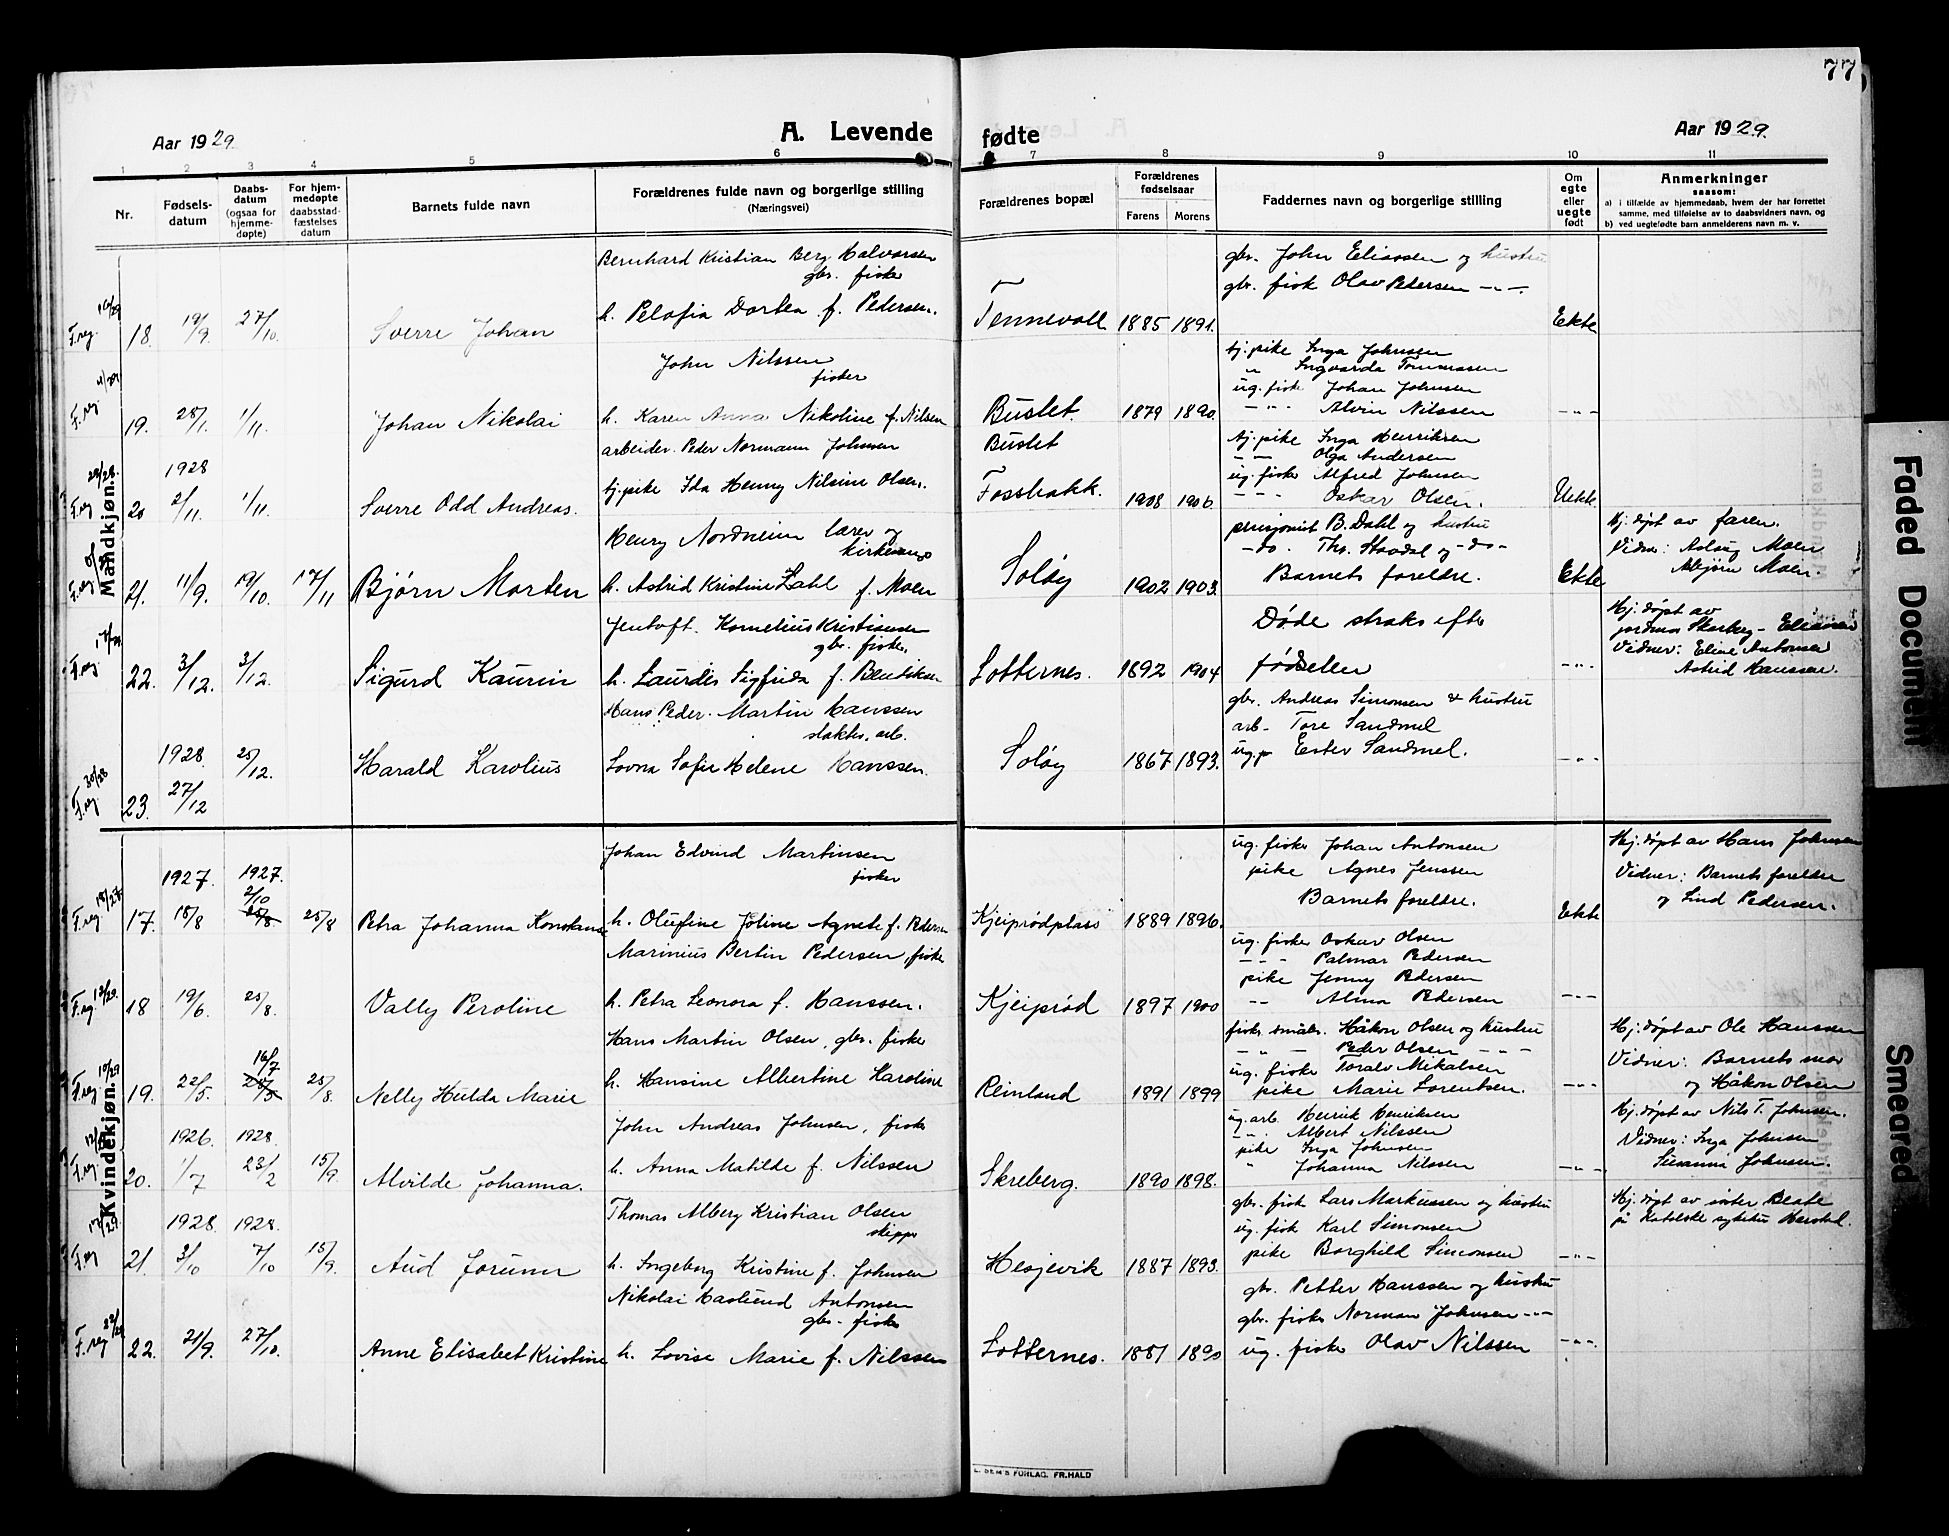 77
Aar 1929.
A. Levende
fødte
Aar 1929.
1 2 3 4 5 6 7 8 9 10 11
Nr.
Fødsels-
datum
Daabs-
datum
(ogsaa for
hjemme-
døpte)
For hjem-
medøpte
daabsstad-
fæstelses
datum
Barnets fulde navn
Forældrenes fulde navn og borgerlige stilling
(Næringsvei)
Forældrenes bopæl
Forældrenes
fødselsaar
Farens Morens
Faddernes navn og borgerlige stilling
Om
egte
eller
uegte
født
Anmerkninger
saasom:
a) i tilfælde av hjemmedaab, hvem der har forrettet
samme, med tilføielse av to daabsvidners navn, og
b) ved uegtefødte barn anmelderens navn m. v.
Mandkjøn.
Bernhard Kristian Berg Halvorsen
gbr. fisker
h. Pelofia Dortea f. Pedersen.
18. 19/9. 27/10. Sverre Johan
Tennevoll 1885 1891.
gbr. John Eliassen og hustru
gbr. fisk Olav Pedersen -"-
Ekte
John Nilssen
fisker
19. 28/1. 1/11. Johan Nikolai
h. Karen Anna Nikoline f. Nilsen
Buslet 1879 1890.
tj. pike Inga Johnsen
" Ingvarda Tommassen
ug. fisk. Johan Johnsen
-"- Alvin Nilssen
-"-
arbeider. Peder Normann Johnsen
Buslet
1928
20 2/11. 1/11. Sverre Odd Andreas.
tj. pike Ida Henny Nilsine Olsen.
Fossbakk. 1908 1906.
tj. pike Inga Henriksen
-"- Olga Andersen
ug. fisker Alfred Johnsen
-"- Oskar Olsen.
Uekte
Henry Nordheim lærer og
kirkesanger
21. 11/9. 19/10. 17/11 Bjørn Morten
h. Astrid Kristine Zahl f. Moen
Soløy 1902 1903.
pensjonist B. Dahl og hustru
-do. Ths. Hovdal og -do-
Barnets foreldre.
Ekte
Hj. døpt av faren.
Vidner: Aslaug Moen
Asbjørn Moen.
Jentoft. Kornelius Kristiansen
gbr. fisker.
22. 3/12. 3/12. Sigurd Kaurin
h. Laurdis Sigfrida f. Bendiksen
Sotternes. 1892 1904
Døde straks efter
fødselen
-"-
Hj. døpt av
jordmor Skarberg - Eliassen
Vidner: Eline Antonsen
Astrid Hanssen.
Hans Peder. Martin Hanssen
slakter, arb.
1928. 25/12. Harald Karolius
Lovna Sofie Helene Hanssen.
23. 27/12
Soløy 1867 1893.
gbr. Andreas Simonsen & hustru
arb- Tore Sandmel
ug.p Ester Sandmel.
-"-
Kvindekjøn.
Johan Edvind Martinsen
fisker
1927. 1927.
2/10
17. 18/8 25/8 25/8 Petra Johanna Konstanse
h. Olufine Joline Agnete f. Pedersen
Kjeiprødplass 1889 1896.
ug. fisker Johan Antonsen
pike Agnes Jenssen
Barnets foreldre.
Ekte
Hj. døpt av Hans Johnsen
Vidner: Barnets foreldre
og Lind Pedersen.
Marinius Bertin Pedersen, fisker
18 19/6. 25/8. Vally Peroline
h. Petra Leonora f. Hanssen.
Kjeiprød 1897 1900
ug. fisker Oskar Olsen
-"- Palmar Pedersen
pike Jenny Pedersen
-"- Alma Pedersen
-"-
Hans Martin Olsen, gbr. fisker
14/7
19. 22/5. 25/8. Nelly Hulda Marie
h. Hansine Albertine Karoline
Reinland 1891 1899
fisker småbr. Håkon Olsen og hustru
-"- Peder Olsen -"-
ug. fisker Toralv Mikalsen
pike Marie Lorentsen.
-"-
Hj. døpt av Ole Hanssen
Vidner: Barnets mor
og Håkon Olsen
John Andreas Johnsen, fisker
1926. 1928.
20. 1/7 23/2 15/9. Alvilde Johanna.
h. Anna Matilde f. Nilssen
Skreberg. 1890 1898.
ug. arb. Henrik Henriksen
-"- Albert Nilssen
pike Inga Johnsen
" Johanna Nilssen
-"-
Hj. døpt av Nils T. Johnsen.
Vidner: Inga Johnsen
Susanna Johnsen.
Thomas Alberg Kristian Olsen
skipper
1928. 1928.
21. 3/10 7/10 15/9. Aud Jorunn
h. Ingeborg Kristine f. Johnsen
Hesjevik 1887 1893.
gbr. fisk Lars Markussen og hustru
ug. fisk Karl Simonsen
pike Borghild Simonsen
-"-
Hj. døpt av søster Beate
på Katolske sykehus Harstad.
Nikolai Haslund Antonsen
gbr. fisker
22. 21/9. 27/10. Anne Elisabet Kristine
h. Lovise Marie f. Nilssen
Sotternes. 1887 1890
gbr. Petter Hanssen og hustru
gbr. fisker Norman Johnsen -"-
ug. fisker Olav Nilssen
-"-
E. SEM'S FORLAG, FR.HALD
Faded Document
Smeared